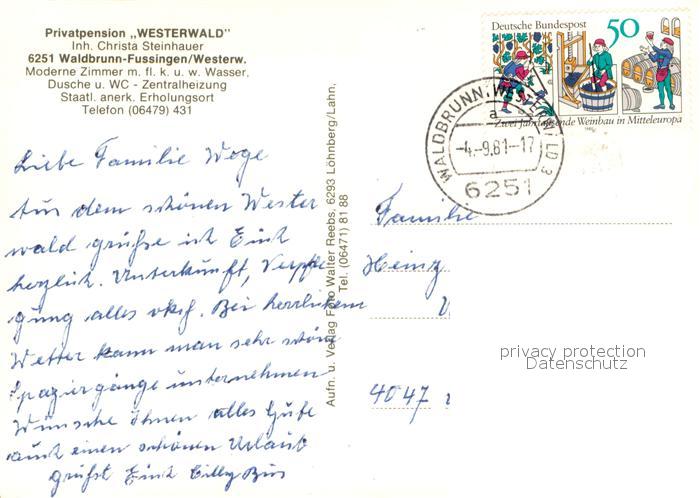 Privatpension „WESTERWALD"
Inh. Christa Steinhauer
6251 Waldbrunn-Fussingen/Westerw.
Moderne Zimmer m. fl. k. u. w. Wasser,
Dusche u. WC - Zentralheizung
Staatl. anerk. Erholungsort
Telefon (06479) 431
Liebe Familie Wege
Aus dem schönen Wester
wald grüße ich Euch
herzlich. Unterkünft, Verpfle
gung alles okey. Bei herrlichem
Wetter kann man sehr schöne
Spaziergänge unternehmen
Wünsche Ihnen alles Gute
auch einen schönen Urlaub
grüßt Euch
Aufn. u. Verlag Foto Walter Reebs, 6293 Löhnberg/Lahn,
Tel. (06471) 81 88
Deutsche Bundespost 50
Zwei Jahrtausende Weinbau in Mitteleuropa
WALDBRUNN, WESTERWALD 3
a
-4.-9.81-17
6251
Familie
Heinz
4047
privacy protection
Datenschutz